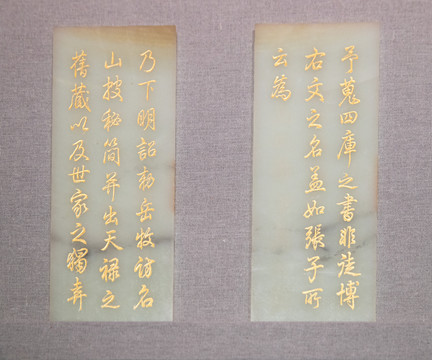 予蒐四庫之書非徒博
右文之名蓋如張子所
云為
乃下明詔勅岳牧訪名
山搜秘簡并出天祿之
舊藏以及世家之獨弆